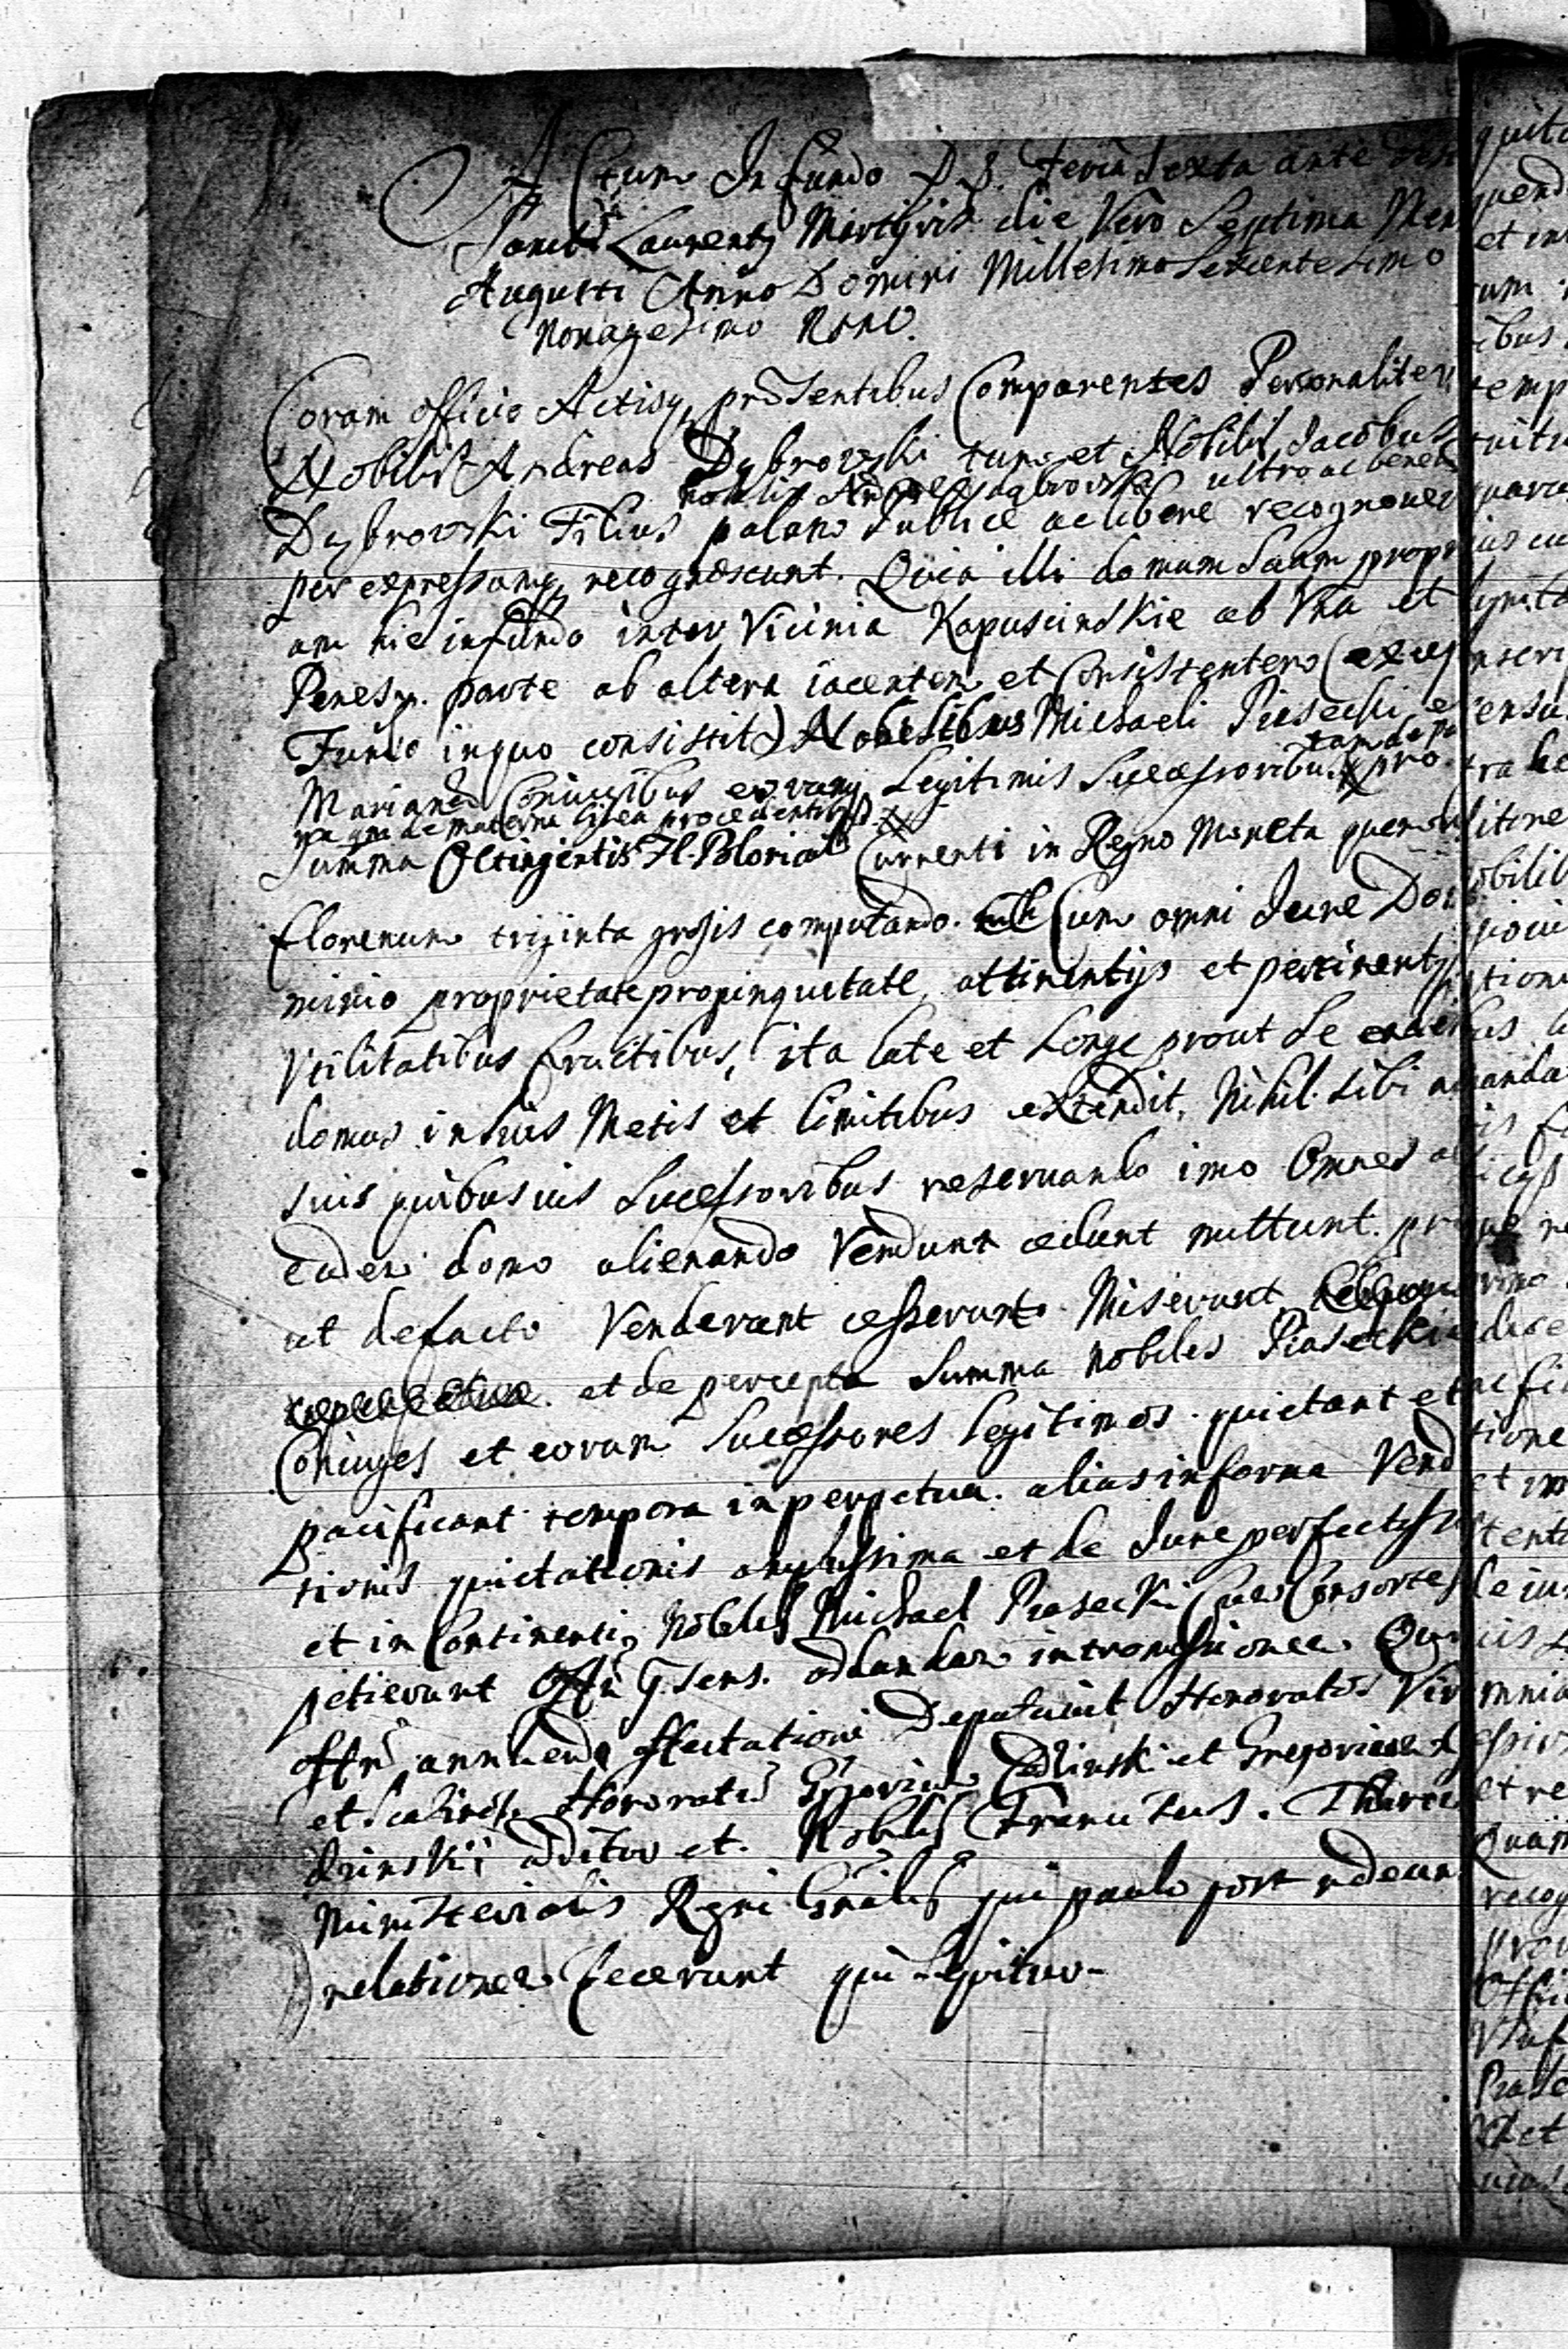 Actum In fundo D. S. feria Sexta ante
Sancti Laurentij Martyris die Vero Septima Men
Augusti Anno Domini Millesimo Sexcentesimo
Nonagesimo Nono.
Coram officio Actisq; prãsentibus Comparentes Personaliter
Nobilis Andreas Dąbrowski tum et Nobilis Jacobus
nobilis Andreę Dąbrowski ultro ac bene
Dąbrowski Filius palam Publice ac libere recognouer
per expressumq; recognoscunt. Quia illi domum Suam propr
am hic in fundo inter Vicinia Kapuscinskie ab Vna et
parte ab altera iacentem et Consistentem (excep
Fundo in quo consistit) Nobilibus Michaeli Piasecki et
Mariannæ Coniugibus eorumq; Legitimis Sucessoribus pro
tam de pa
na qua de materna linea procedentibus
Summa Octingentis Fl. Polonical Currenti in Regno Moneta quemuis
florenum triginta grosis computando. Cum omni Jure Do
minio proprietate propinquitate, attinentijs et pertinentijs
Vtilitatibus fructibus, ita late et Longe prout Se eadem
domus in suis Metis et limitibus extendit, Nihil Sibi a
suis quibusuis Sucessoribus reseruando imo Omnes a
eadem domo alienando Vendunt cedunt mittunt. pro
ut de facto Venderunt cesserunt Miserunt
et de percepta Summa Nobiles Piasecki
Coniuges et eorum Sucessores legitimos quietant et
pacificant tempora in perpetua. alias in forma Vend
tionis quietationis amplissima et de Jure perfectiss
et in Continenti Nobiles Michael Piasecki Cum Consorte
petierunt Offi addandam intromissionem. Qu
offm annuendo Deputauit Honoratos Vir
et Honoratũ Gregorium et Gregorium
drinski additur et. Nobilis Franciscus.
Ministerialis Regni Gnalis qui paulo post redeun
relationem fecerunt quæ sequitur